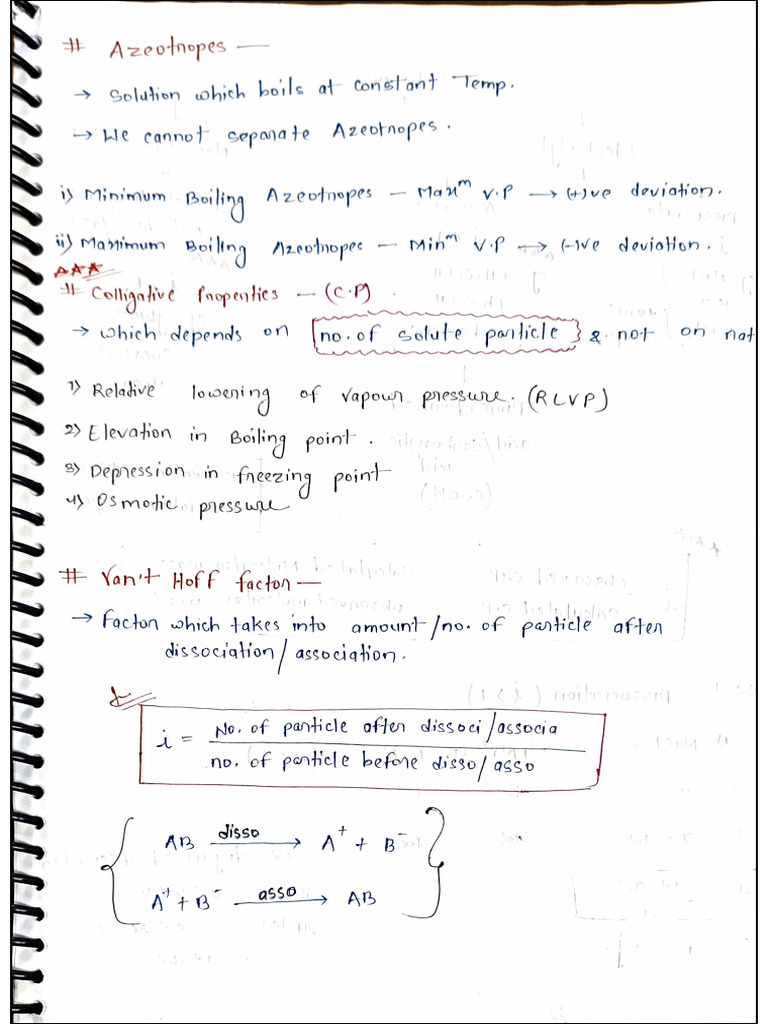 # Azeotropes —
→ Solution which boils at constant Temp.
→ We cannot separate Azeotropes.
i) Minimum Boiling Azeotropes – Maxᵐ V.P → (+)ve deviation.
ii) Maximum Boiling Azeotropes – Minᵐ V.P → (-)ve deviation.
# Colligative Properties – (C.P)
→ which depends on no. of solute particle & not on nat
1) Relative lowering of vapour pressure. (RLVP)
2) Elevation in Boiling point.
3) Depression in freezing point
4) Osmotic pressure
# Van't Hoff factor —
→ Factor which takes into amount/no. of particle after
dissociation/association.
i = No. of particle after dissoci/associa
no. of particle before disso/asso
AB disso → A⁺ + B⁻
A⁺ + B⁻ asso → AB